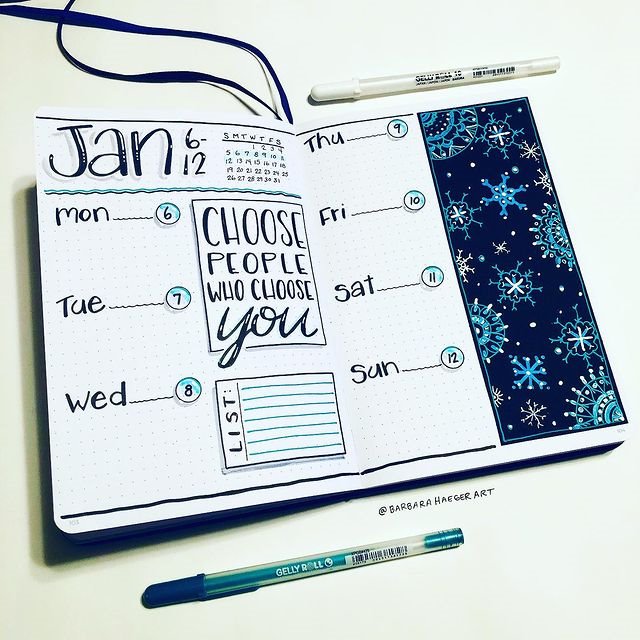 Jan 6-12
S M T W T F S
1 2 3 4
5 6 7 8 9 10 11
12 13 14 15 16 17 18
19 20 21 22 23 24 25
26 27 28 29 30 31
mon 6
Tue 7
Wed 8
CHOOSE
PEOPLE
WHO CHOOSE
you
LIST:
Thu 9
Fri 10
Sat 11
Sun 12
GELLY ROLL 10
@BARBARAHAEGERART
GELLY ROLL